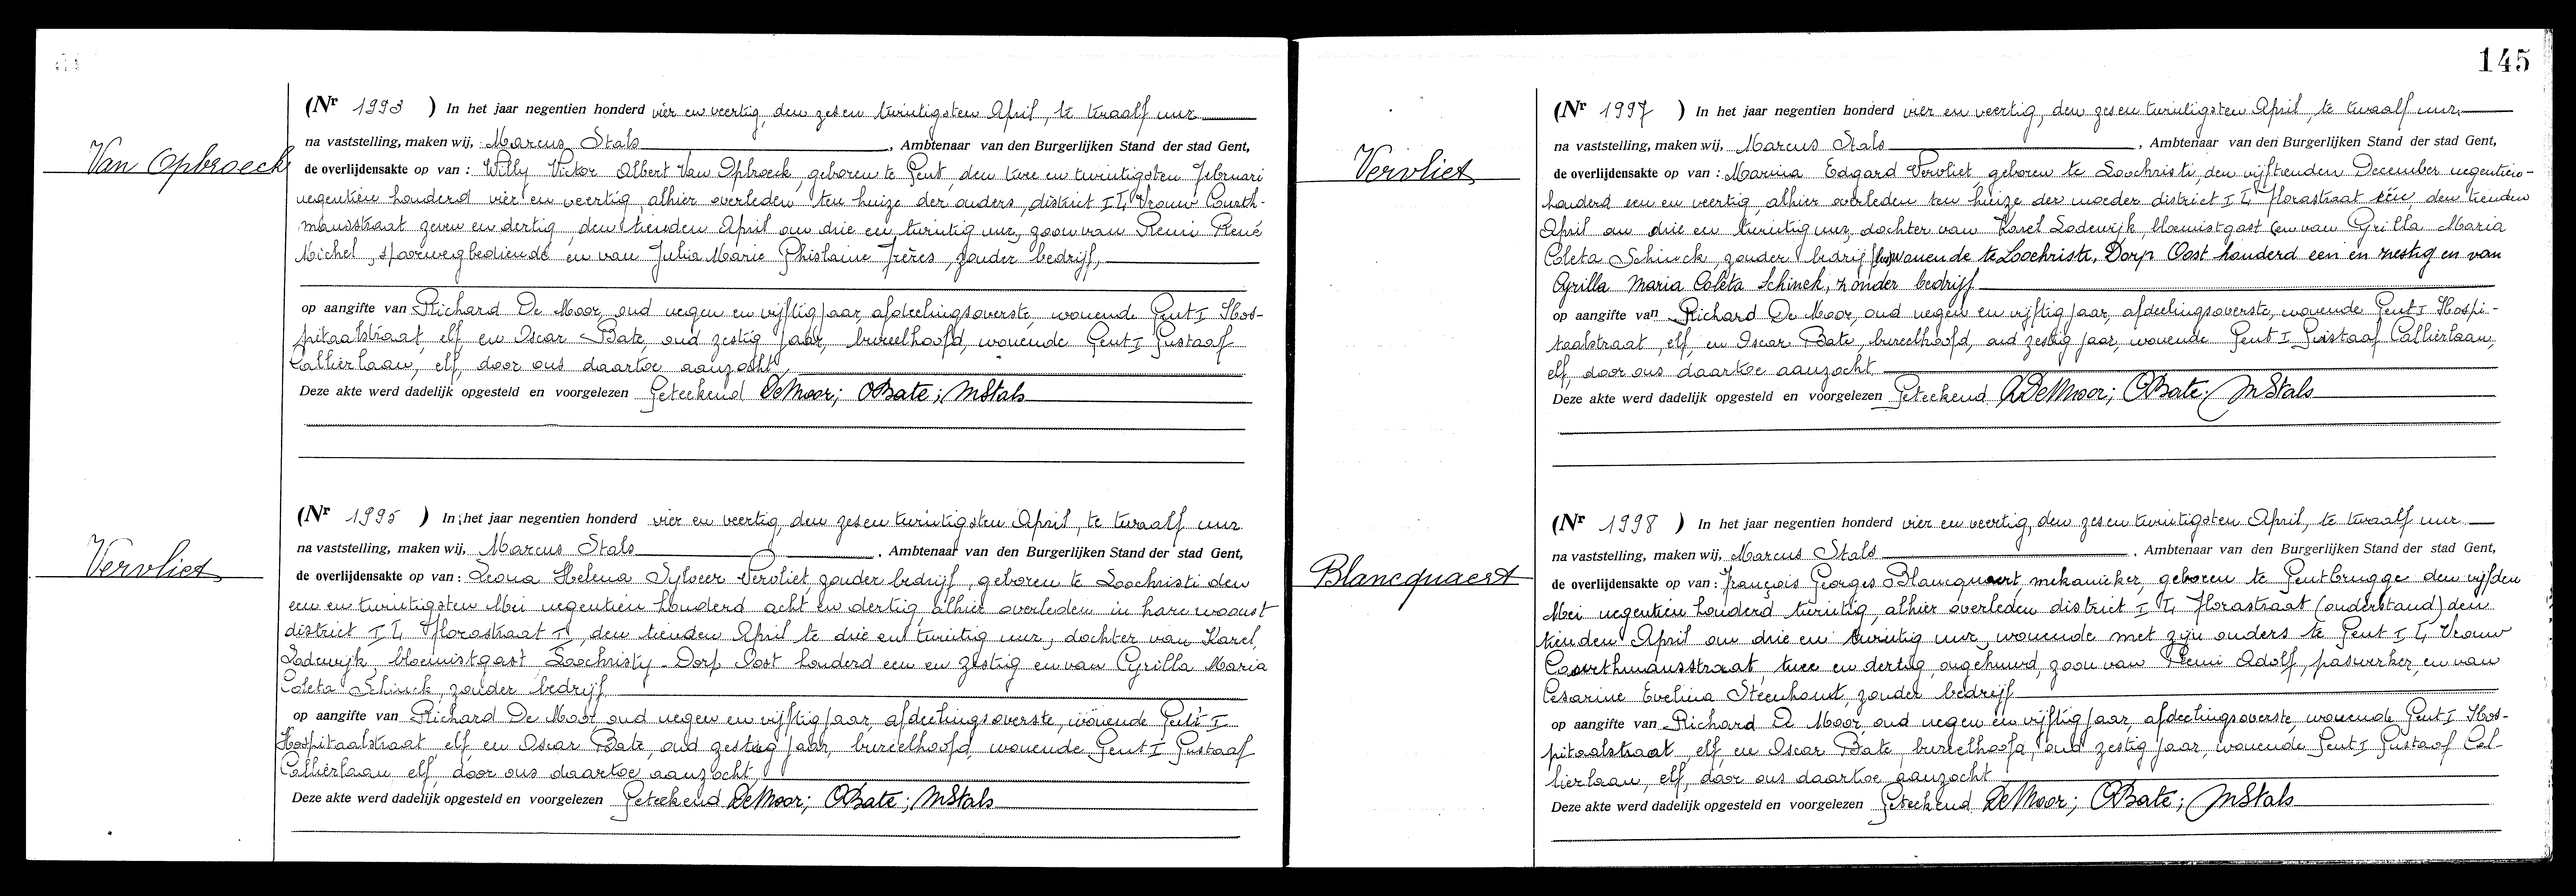 Van Opbroeck
(Nr 1993 ) In het jaar negentien honderd vier en veertig, den zes en twintigsten April, te twaalf uur
na vaststelling, maken wij, Marcus Stals, Ambtenaar van den Burgerlijken Stand der stad Gent,
de overlijdensakte op van : Willy Victor Albert Van Opbroeck, geboren te Gent, den twee en twintigsten Februari
negentien honderd vier en veertig, alhier overleden ten huize der ouders, district I L, Vrouw Courth-
mansstraat zeven en dertig, den tienden April om drie en twintig uur, zoon van Remi René
Michel, spoorwegbediende en van Julia Marie Ghislaine Frères, zonder bedrijf,
op aangifte van Richard De Moor, oud negen en vijftig jaar, afdeelingsoverste, wonende Gent I Hos-
pitaalstraat, elf en Oscar Bate, oud zestig jaar, bureelhoofd, wonende Gent I Gustaaf
Callierlaan, elf, door ons daartoe aanzocht,
Deze akte werd dadelijk opgesteld en voorgelezen Geteekend DeMoor; OBate; MStals
Vervliet
(Nr 1995 ) In het jaar negentien honderd vier en veertig, den zes en twintigsten April, te twaalf uur
na vaststelling, maken wij, Marcus Stals, Ambtenaar van den Burgerlijken Stand der stad Gent,
de overlijdensakte op van : Leona Helena Sylveer Vervliet, zonder bedrijf, geboren te Loochristi den
een en twintigsten Mei negentien honderd acht en dertig, alhier overleden in hare woonst
district I L, Florastraat I, den tienden April te drie en twintig uur, dochter van Karel
Lodewijk, bloemistgast Loochristy-Dorp Oost honderd een en zestig en van Cyrilla Maria
Coleta Schinck, zonder bedrijf
op aangifte van Richard De Moor oud negen en vijftig jaar, afdeelingsoverste, wonende Gent I
Hospitaalstraat, elf en Oscar Bate, oud zestig jaar, bureelhoofd, wonende Gent I Gustaaf
Callierlaan elf, door ons daartoe aanzocht,
Deze akte werd dadelijk opgesteld en voorgelezen Geteekend DeMoor; OBate; MStals
145
Vervliet
(Nr 1997 ) In het jaar negentien honderd vier en veertig, den zes en twintigsten April, te twaalf uur
na vaststelling, maken wij, Marcus Stals, Ambtenaar van den Burgerlijken Stand der stad Gent,
de overlijdensakte op van : Marina Edgard Vervliet, geboren te Loochristi, den vijftienden December negentien-
honderd een en veertig, alhier overleden ten huize der moeder district I L, Florastraat één, den tienden
April om drie en twintig uur, dochter van Karel Lodewijk, bloemistgast (en van Cyrilla Maria
Coleta Schinck, zonder bedrijf) wonende te Loochristi, Dorp Oost honderd een en zestig en van
Cyrilla Maria Coleta Schinck, zonder bedrijf
op aangifte van Richard De Moor, oud negen en vijftig jaar, afdeelingsoverste, wonende Gent I Hospi-
taalstraat, elf, en Oscar Bate, bureelhoofd, oud zestig jaar, wonende Gent I Gustaaf Callierlaan,
elf, door ons daartoe aanzocht
Deze akte werd dadelijk opgesteld en voorgelezen Geteekend RDeMoor; OBate; MStals
Blancquaert
(Nr 1998 ) In het jaar negentien honderd vier en veertig, den zes en twintigsten April, te twaalf uur
na vaststelling, maken wij, Marcus Stals, Ambtenaar van den Burgerlijken Stand der stad Gent,
de overlijdensakte op van : François Georges Blancquaert, mekanieker, geboren te Gentbrugge den vijfden
Mei negentien honderd twintig, alhier overleden district I L, Florastraat (onderstand) den
tienden April om drie en twintig uur, wonende met zijn ouders te Gent I L, Vrouw
Courthmansstraat, twee en dertig, ongehuwd, zoon van Remi Adolf, paswerker, en van
Cesarine Evelina Steenhout, zonder bedrijf
op aangifte van Richard De Moor, oud negen en vijftig jaar, afdeelingsoverste, wonende Gent I Hos-
pitaalstraat, elf, en Oscar Bate, bureelhoofd, oud zestig jaar, wonende Gent I Gustaaf Cal-
lierlaan, elf, door ons daartoe aanzocht
Deze akte werd dadelijk opgesteld en voorgelezen Geteekend DeMoor; OBate; MStals